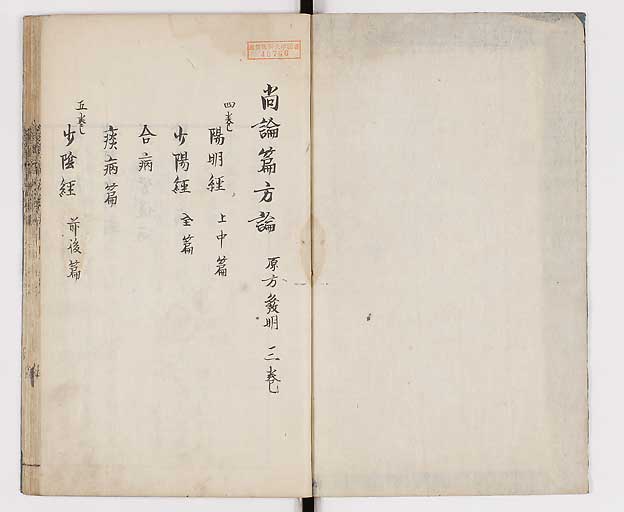 尚論篇方論 原方發明 三卷
四卷
陽明經 上中篇
少陽經 全篇
合病
痰病篇
五卷
少陰經 前後篇